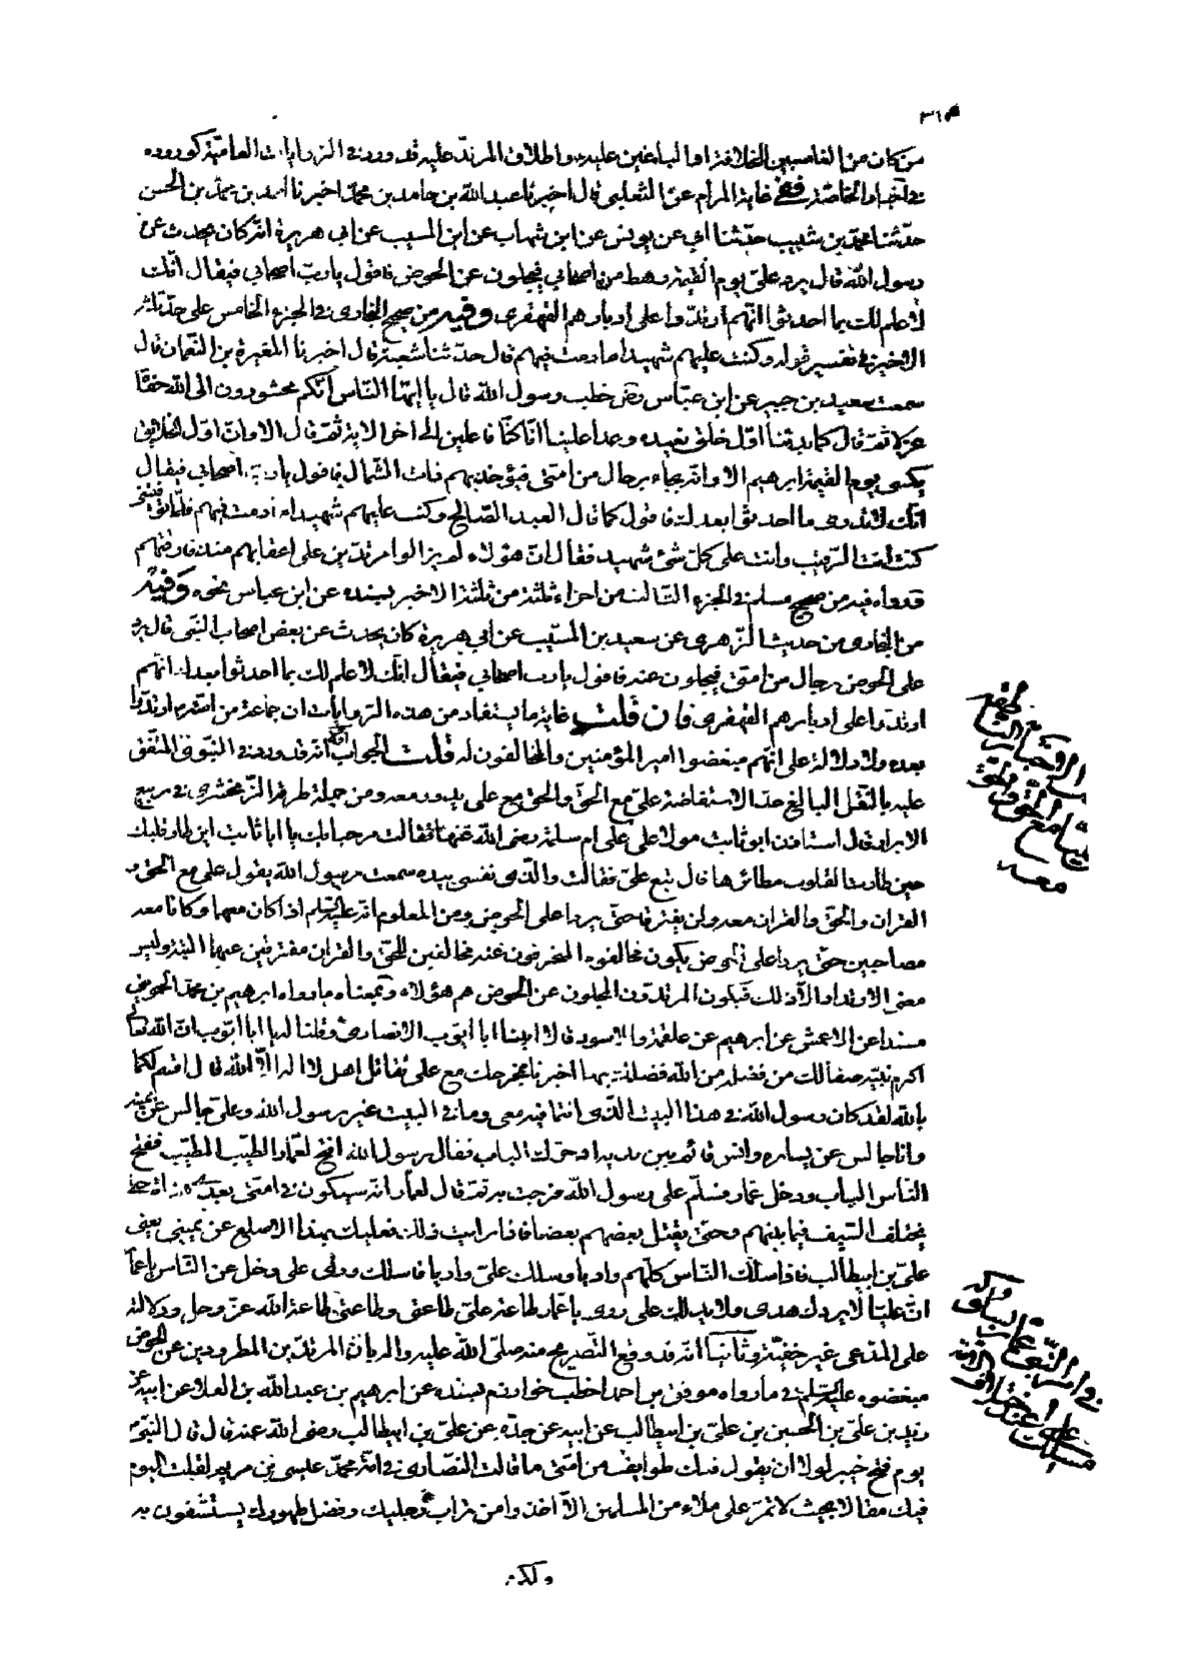 ٣١٣
من كان من الغاصبين للخلافة او الباغين عليه واطلاق المرتد عليه قد ورد فى الروايات العامية كوروده
فى اخبار الخاصة ففى غاية المرام عن الثعلبى قال اخبرنا عبد الله بن حامد بن محمد اخبرنا احمد بن محمد بن الحسن
حدثنا محمد بن شبيب حدثنا ابي عن يونس عن ابن شهاب عن ابن المسيب عن ابي هريرة انه كان يحدث عن
رسول الله قال يرد على يوم القيمة رهط من اصحابي فيجلون عن الحوض فاقول يا رب اصحابي فيقال انك
لا علم لك بما احدثوا انهم ارتدوا على ادبارهم القهقرى وفيه من صحيح البخارى فى الجزء الخامس على حد ثلثه
الاخير فى تفسير قوله وكنت عليهم شهيدا ما دمت فيهم قال حدثنا شعبة قال اخبرنا المغيرة بن النعمان قال
سمعت سعيد بن جبير عن ابن عباس رض خطب رسول الله قال يا ايها الناس انكم محشورون الى الله حفاة
عراة ثم قال كما بدئنا اول خلق نعيده وعدا علينا انا كنا فاعلين الى اخر الاية ثم قال الا وان اول الخلائق
يكسى يوم القيمة ابرهيم الا وانه يجاء برجال من امتى فيؤخذ بهم ذات الشمال فاقول يا رب اصحابي فيقال
انك لا تدرى ما احدثوا بعدك فاقول كما قال العبد الصالح وكنت عليهم شهيدا ما دمت فيهم فلما توفيتنى
كنت انت الرقيب وانت على كل شئ شهيد فقال ان هؤلاء لم يزالوا مرتدين على اعقابهم منذ فارقتهم
ورواه فيه من صحيح مسلم فى الجزء الثالث من اجزاء ثلثة من ثلثه الاخير بسنده عن ابن عباس نحوه وفيه
من البخارى من حديث الزهرى عن سعيد بن المسيب عن ابي هريرة كان يحدث عن بعض اصحاب النبى قال يرد
على الحوض رجال من امتى فيجلون عنه فاقول يا رب اصحابي فيقال انك لا علم لك بما احدثوا بعدك انهم
ارتدوا على ادبارهم القهقرى فان قلت غاية ما يستفاد من هذه الروايات ان جماعة من امته ارتدوا
بعده ولا دلالة على انهم مبغضوا امير المؤمنين والمخالفون له قلت الجواب اولا انه قد ورد فى النبوى المتفق
عليه بالنقل البالغ حد الاستفاضة على مع الحق والحق مع على يدور معه ومن جملة طرقه الزمخشرى فى ربيع
الابرار قال استاذن ابو ثابت مولا على على ام سلمة رضى الله عنها فقالت مرحبا بك يا ابا ثابت اين طار قلبك
حين طارت القلوب مطائرها قال تبع على فقالت والذى نفسى بيده سمعت رسول الله يقول على مع الحق و
القران والحق والقران معه ولن يفترقا حتى يردا على الحوض ومن المعلوم انه عليه السلم اذا كان معهما وكانا معه
مصاحبين حتى يردا على الحوض يكون مخالفوه المنحرفون عنه مخالفين للحق والقران مفترقين عنهما البتة وليس
معنى الارتداد الا ذلك فيكون المرتدون المجلون عن الحوض هم هؤلاء وبمعناه ما رواه ابرهيم بن محمد الحموينى
مسندا عن الاعمش عن ابرهيم عن علقمة والاسود قالا اتينا ابا ايوب الانصارى وقلنا له يا ابا ايوب ان الله تعالى
اكرم نبيه صفا لك من فضله من الله فضلك بها اخبرنا بمخرجك مع على تقاتل اهل لا اله الا الله قال اقسم لكما
بالله لقد كان رسول الله فى هذا البيت الذى انتما فيه معى وما فى البيت غير رسول الله وعلى جالس عن يمينه
وانا جالس عن يساره وانس قائم بين يديه اذ حرك الباب فقال رسول الله افتح لعمار الطيب المطيب ففتح
الناس الباب ودخل عمار فسلم على رسول الله فرحب به ثم قال لعمار انه سيكون فى امتى بعدى هنات حتى
يختلف السيف فيما بينهم وحتى يقتل بعضهم بعضا فاذا رايت ذلك فعليك بهذا الاصلع عن يمينى يعنى
على بن ابيطالب فاذا سلك الناس كلهم واديا وسلك على واديا فاسلك وادى على وخل عن الناس يا عمار
ان عليا لا يردك هدى ولا يدلك على ردى يا عمار طاعة على طاعتى وطاعتى طاعة الله عز وجل ودلالته
على المدعى غير خفية وثانيا انه قد وقع التصريح منه صلى الله عليه واله بان المرتدين المطرودين عن الحوض
مبغضوه عليه السلم فى ما رواه موفق بن احمد اخطب خوارزم بسنده عن ابرهيم بن عبد الله بن العلاء عن ابيه عن
زيد بن على بن الحسين بن على بن ابيطالب عن ابيه عن جده عن على بن ابيطالب رضى الله عنه قال قال النبى
يوم فتح خيبر لولا ان يقول فيك طوايف من امتى ما قالت النصارى فى المسيح عيسى بن مريم لقلت اليوم
فيك مقالا بحيث لا تمر على ملاء من المسلمين الا اخذوا من تراب رجليك وفضل طهورك يستشفون به
ولكن